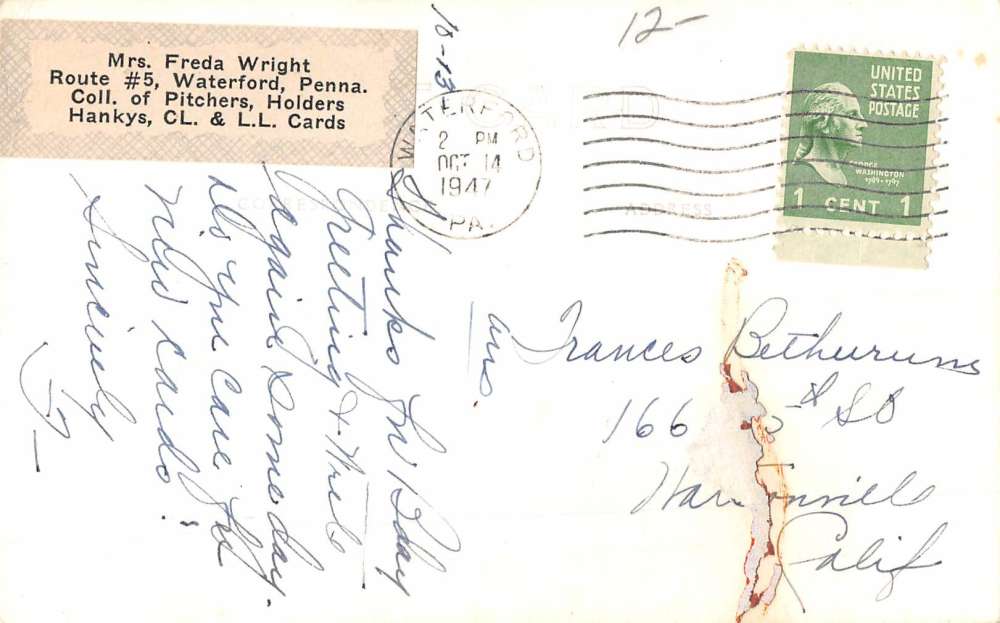 Mrs. Freda Wright
Route #5, Waterford, Penna.
Coll. of Pitchers, Holders
Hankys, CL. & L.L. Cards
10-13
12-
WATERFORD
2 PM
OCT 14
1947
PA.
UNITED
STATES
POSTAGE
GEORGE
WASHINGTON
1789-1797
1 CENT 1
CORRESPONDENCE
ADDRESS
Thanks for B'day
Greeting & Write
again some day.
Do you care for
New cards?
Sincerely
F-
Ans.
Frances Bethurum
166
Calif